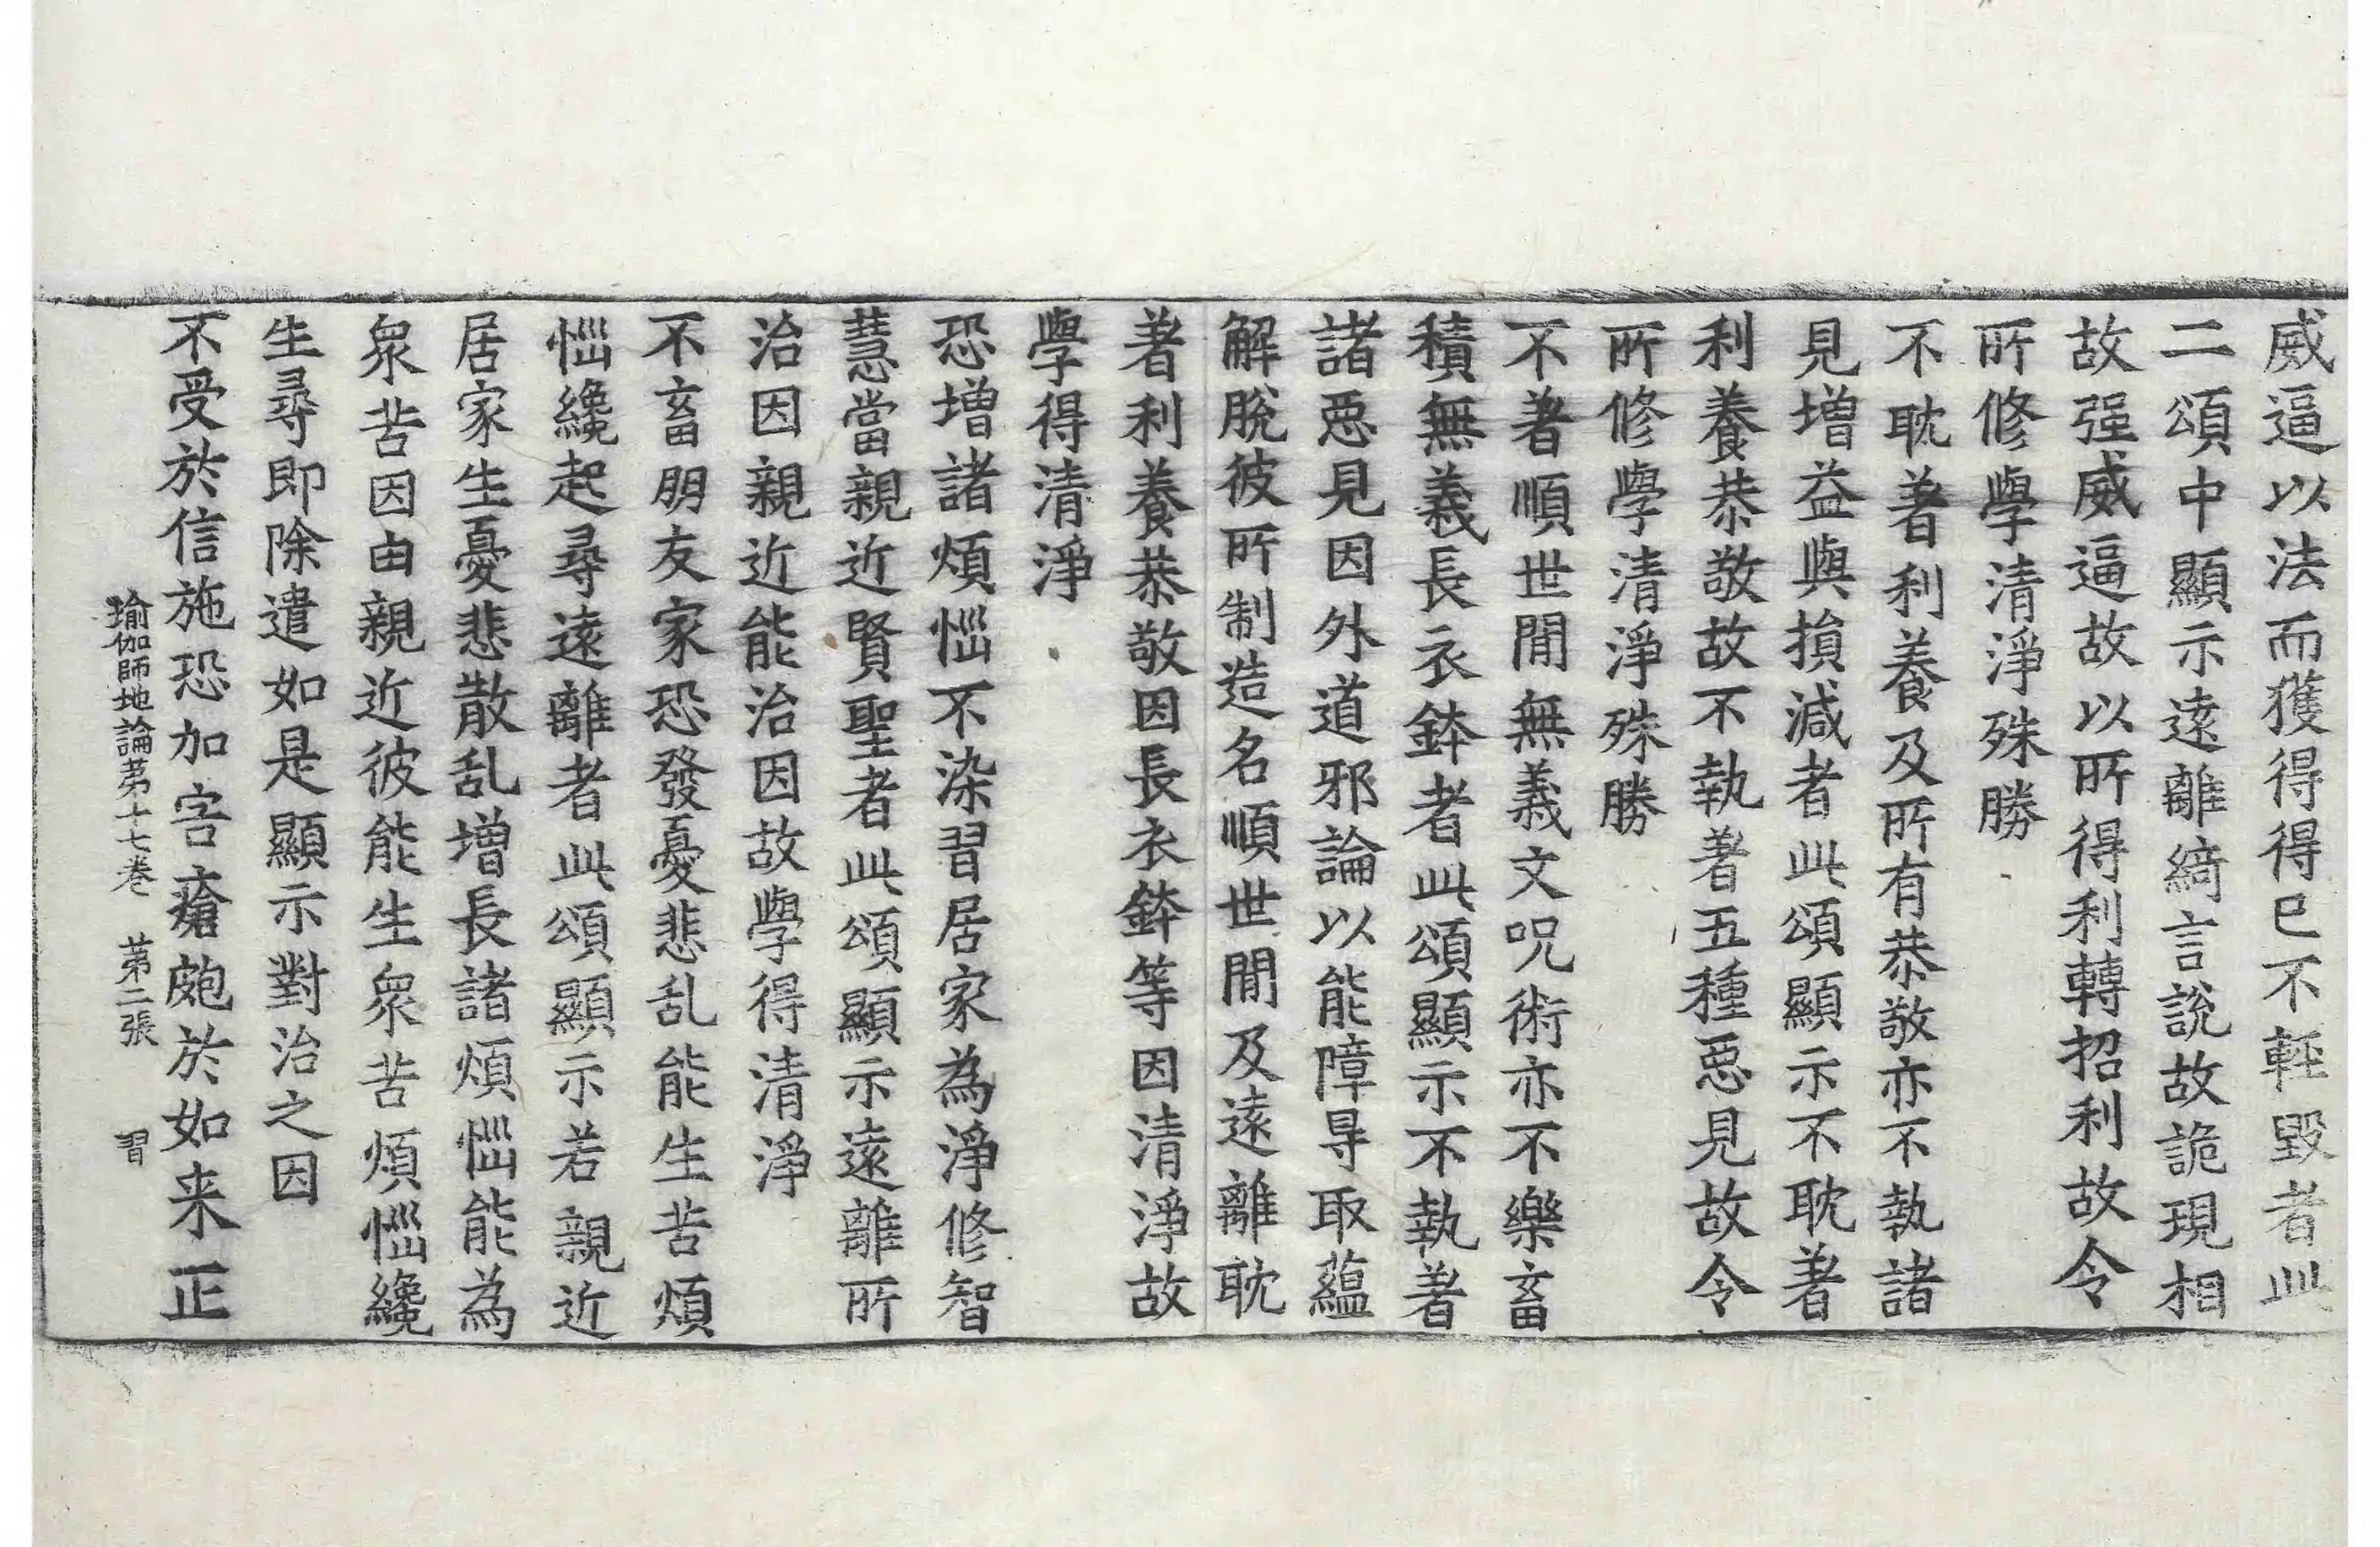 威逼以法而獲得得已不輕毀者此
二頌中顯示遠離綺言說故詭現相
故强威逼故以所得利轉招利故令
所修學清淨殊勝
不耽著利養及所有恭敬亦不執諸
見增益與損減者此頌顯示不耽著
利養恭敬故不執著五種惡見故令
所修學清淨殊勝
不著順世閒無義文呪術亦不樂畜
積無義長衣鉢者此頌顯示不執著
諸惡見因外道邪論以能障㝵取蘊
解脫彼所制造名順世閒及遠離耽
著利養恭敬因長衣鉢等因清淨故
學得清淨
恐增諸煩惱不染習居家為淨修智
慧當親近賢聖者此頌顯示遠離所
治因親近能治因故學得清淨
不畜朋友家恐發憂悲乱能生苦煩
惱纔起尋遠離者此頌顯示若親近
居家生憂悲散乱增長諸煩惱能為
衆苦因由親近彼能生衆苦煩惱纔
生尋即除遣如是顯示對治之因
不受於信施恐加害瘡皰於如来正
瑜伽師地論苐十七卷 苐二張 習